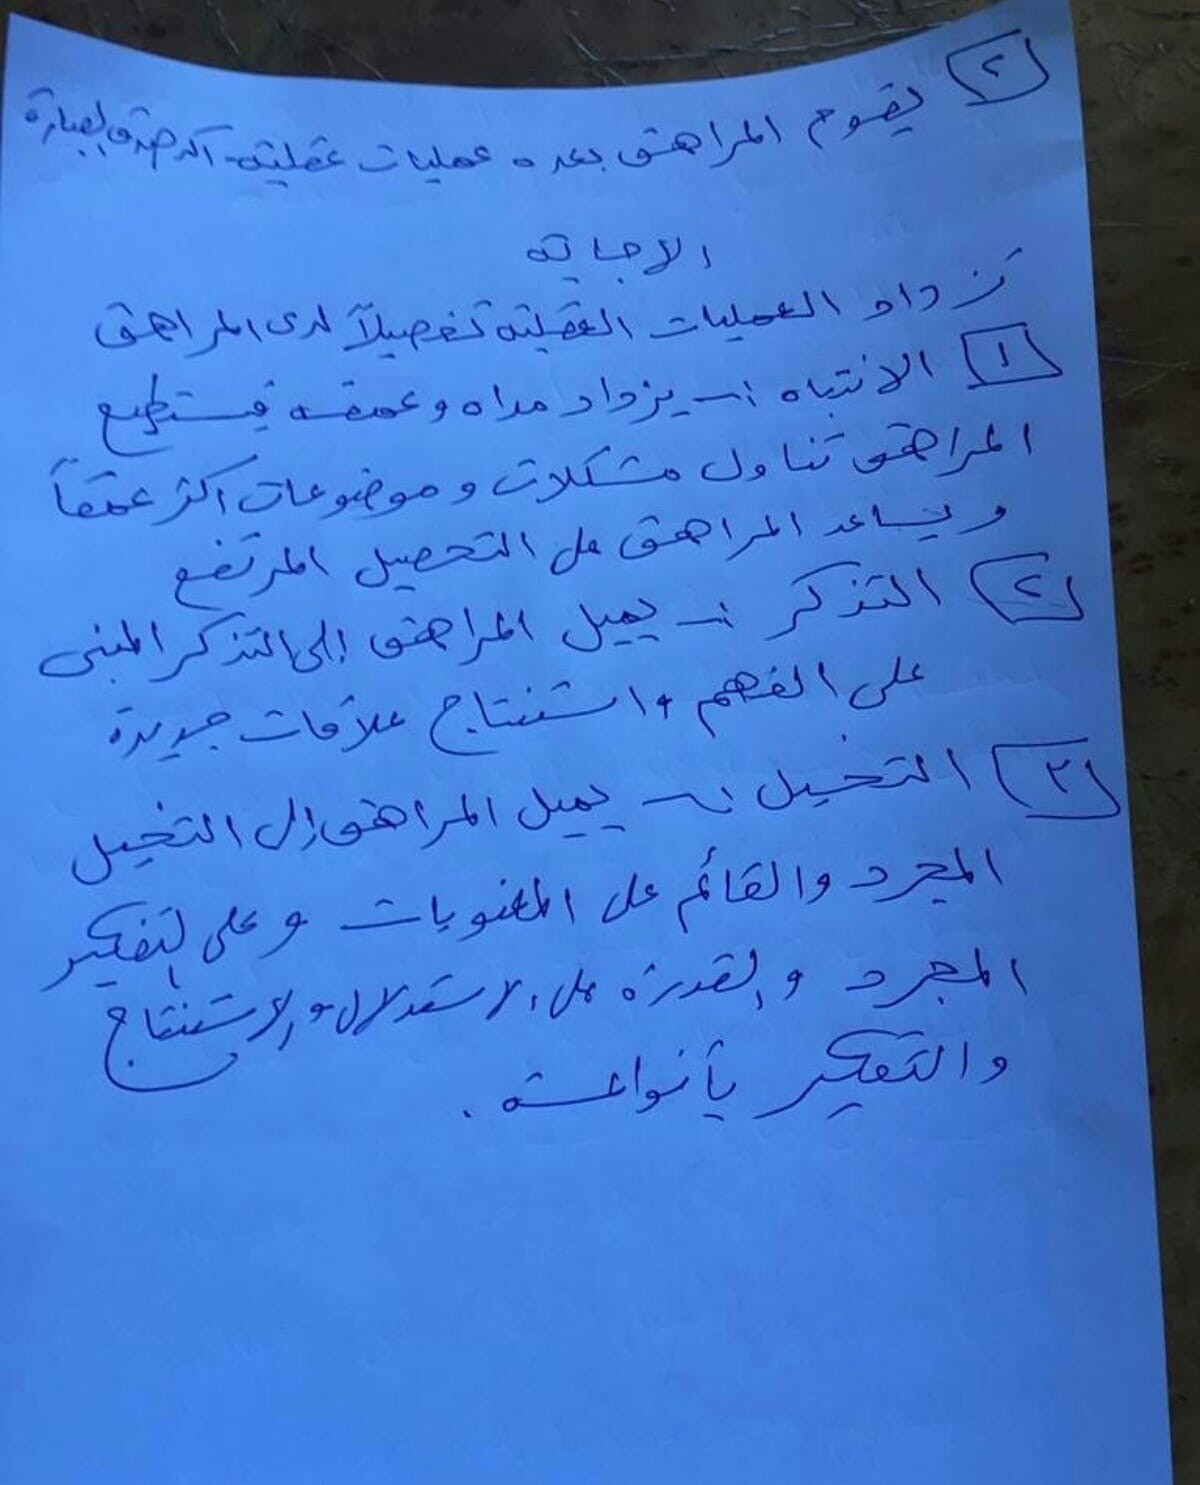 ٢ يقوم المراهق بعدة عمليات عقلية. أكد صدق العبارة
الاجابة
تزداد العمليات العقلية تفصيلاً لدى المراهق
١ الانتباه :- يزداد مداه وعمقه فيستطيع
المراهق تناول مشكلات وموضوعات اكثر عمقاً
ويساعد المراهق على التحصيل المرتفع
٢ التذكر :- يميل المراهق إلى التذكر المبنى
على الفهم واستنتاج علاقات جديدة
٣ التخيل :- يميل المراهق إلى التخيل
المجرد والقائم على المعنويات وعلى التفكير
المجرد والقدرة على الاستدلال والاستنتاج
والتفكير بأنواعه.